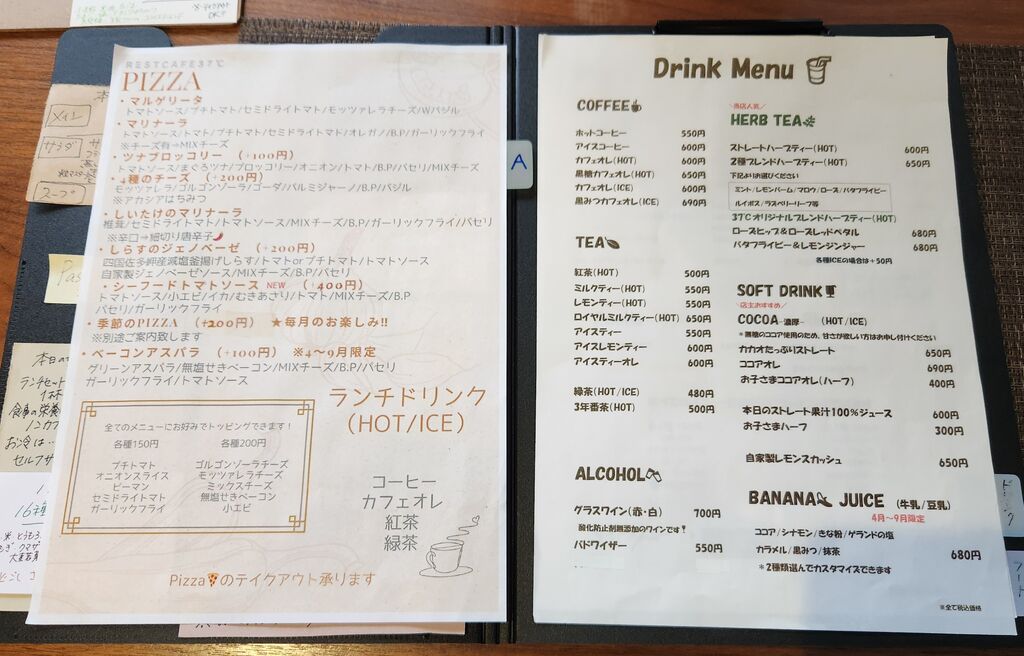 RESTCAFE37℃
PIZZA
・マルゲリータ
トマトソース/プチトマト/セミドライトマト/モッツァレラチーズ/Wバジル
・マリナーラ
トマトソース/トマト/プチトマト/セミドライトマト/オレガノ/B.P/ガーリックフライ
※チーズ有⇒MIXチーズ
・ツナブロッコリー （+100円）
トマトソース/まぐろツナ/ブロッコリー/オニオン/トマト/B.P/パセリ/MIXチーズ
・4種のチーズ （+200円）
モッツァレラ/ゴルゴンゾーラ/ゴーダ/パルミジャーノ/B.P/バジル
※アカシアはちみつ
・しいたけのマリナーラ
椎茸/セミドライトマト/トマトソース/MIXチーズ/B.P/ガーリックフライ/パセリ
※辛口⇒細切り唐辛子
・しらすのジェノベーゼ （+200円）
四国佐多岬産減塩釜揚げしらす/トマトorプチトマト/トマトソース
自家製ジェノベーゼソース/MIXチーズ/B.P/パセリ
・シーフードトマトソース NEW （+400円）
トマトソース/小エビ/イカ/むきあさり/トマト/MIXチーズ/B.P
パセリ/ガーリックフライ
・季節のPIZZA （+200円） ★毎月のお楽しみ!!
※別途ご案内致します
・ベーコンアスパラ （+100円） ※4～9月限定
グリーンアスパラ/無塩せきベーコン/MIXチーズ/B.P/パセリ
ガーリックフライ/トマトソース
全てのメニューにお好みでトッピングできます！
各種150円 各種200円
プチトマト ゴルゴンゾーラチーズ
オニオンスライス モッツァレラチーズ
ピーマン ミックスチーズ
セミドライトマト 無塩せきベーコン
ガーリックフライ 小エビ
ランチドリンク
（HOT/ICE）
コーヒー
カフェオレ
紅茶
緑茶
Pizzaのテイクアウト承ります
A
Drink Menu
COFFEE
ホットコーヒー 550円
アイスコーヒー 600円
カフェオレ(HOT) 600円
黒糖カフェオレ(HOT) 650円
カフェオレ(ICE) 600円
黒みつカフェオレ(ICE) 690円
TEA
紅茶(HOT) 500円
ミルクティー(HOT) 550円
レモンティー(HOT) 550円
ロイヤルミルクティー(HOT) 650円
アイスティー 550円
アイスレモンティー 600円
アイスティーオレ 600円
緑茶(HOT/ICE) 480円
3年番茶(HOT) 500円
ALCOHOL
グラスワイン(赤・白) 700円
酸化防止剤無添加のワインです！
バドワイザー 550円
＼当店人気／
HERB TEA
ストレートハーブティー(HOT) 600円
2種ブレンドハーブティー(HOT) 650円
下記よりお選びください
ミント/レモンバーム/マロウ/ローズ/バタフライピー
ルイボス/ラズベリーリーフ等
37℃オリジナルブレンドハーブティー(HOT)
ローズヒップ＆ローズレッドペタル 680円
バタフライピー＆レモンジンジャー 680円
各種ICEの場合は+50円
SOFT DRINK
＼店主おすすめ／
COCOA-濃厚- (HOT/ICE)
*無糖のココア使用のため、甘さが欲しい方はお申し付けください
カカオたっぷりストレート 650円
ココアオレ 690円
お子さまココアオレ(ハーフ) 400円
本日のストレート果汁100%ジュース 600円
お子さまハーフ 300円
自家製レモンスカッシュ 650円
BANANA JUICE (牛乳/豆乳)
4月～9月限定
ココア/シナモン/きな粉/ゲランドの塩
カラメル/黒みつ/抹茶 680円
*2種類選んでカスタマイズできます
※全て税込価格
メイン
サラダ
スープ
Pas
本日の
ランチセット
食事の栄養
ノンカフ
お冷は
セルフサ
16種